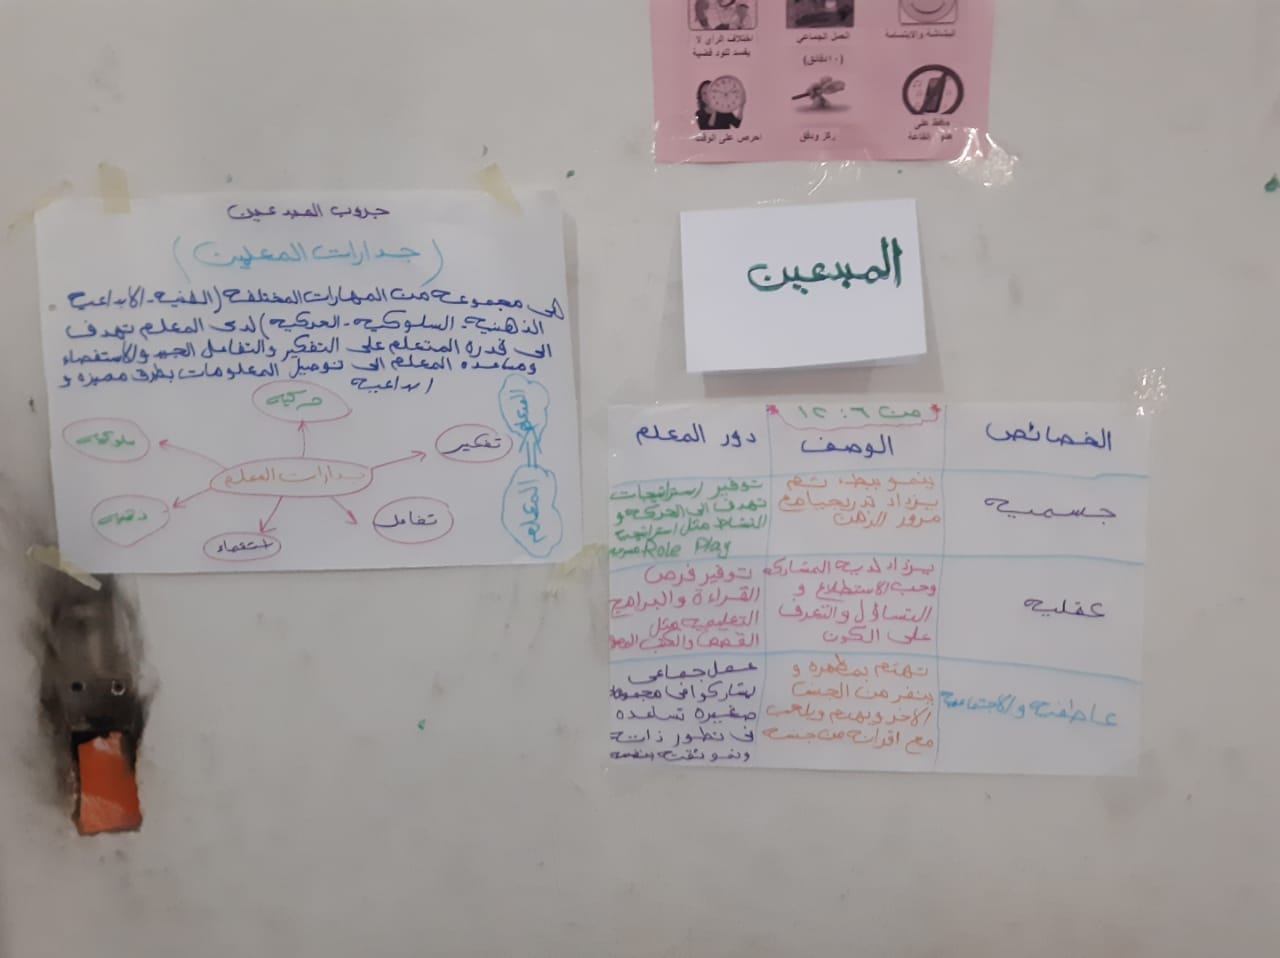 اختلاف الرأي لا
يفسد للود قضية
العمل الجماعي
(١٠دقائق)
البشاشة والابتسامة
احرص على الوقت
ركز ودقق
حافظ على
القاعة
جروب المبدعين
(جدارات المعلمين)
هى مجموعة من المهارات المختلفة (الفنية - الابداعية
الذهنية - السلوكية - الحركية) لدى المعلم تهدف
الى قدرة المتعلم على التفكير والتفاعل الجيد والاستقصاء
ومساعدة المعلم الى توصيل المعلومات بطرق مميزة و
ابداعية
حركية
سلوكية
تفكير
جدارات المعلم
ذهنية
تفاعل
استقصاء
المتعلم
المعلم
المبدعين
من ٦ : ١٢
الخصائص
الوصف
دور المعلم
جسمية
ينمو ببطء ثم
يزداد تدريجيا مع
مرور الزمن
توفير استراتيجيات
تهدف الى الحركة و
النشاط مثل استراتيجية
Role Play
عقلية
يزداد لديه المشاركة
وحب الاستطلاع و
التساؤل والتعرف
على الكون
توفير فرص
القراءة والبرامج
التعليمية مثل
القصص والكتب
عاطفية والاجتماعية
تهتم بمظهره و
ينفر من الجنس
الآخر ويهتم ويلعب
مع اقرانه من جنسه
عمل جماعى
يشاركوا فى مجموعات
صغيرة تساعده
فى تطور ذاته
ونمو ثقته بنفسه